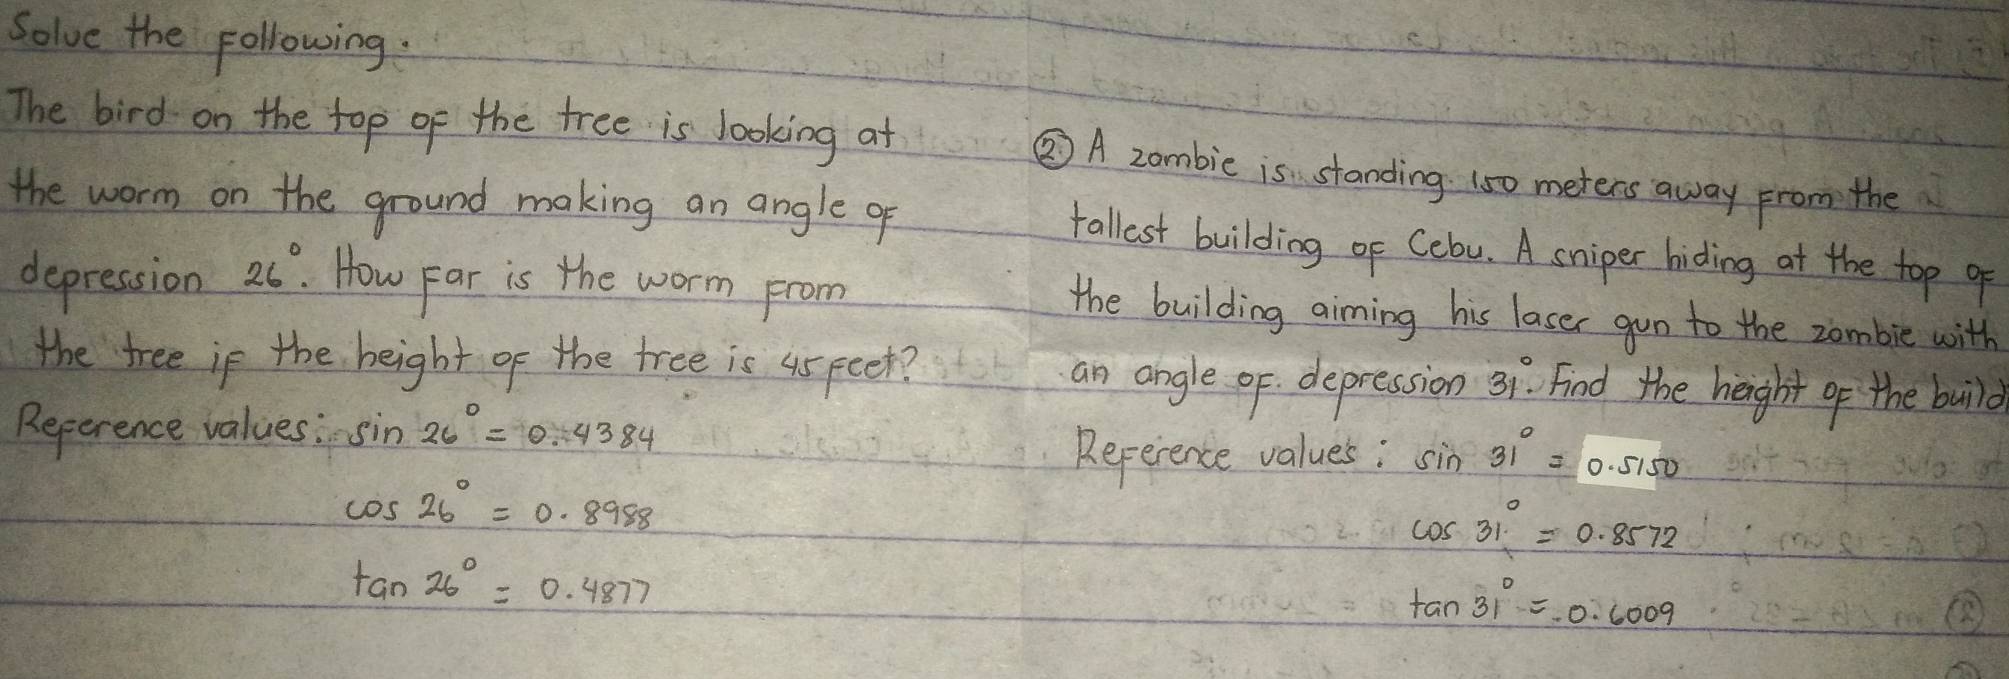 Solve the following.
The bird on the top of the tree is looking at
the worm on the ground making an angle of
depression 26°. How far is the worm from
the tree if the height of the tree is 45 feet?
Reference values: sin 26° = 0.4384
cos 26° = 0.8988
tan 26° = 0.4877
② A zombie is standing 150 meters away from the
tallest building of Cebu. A sniper hiding at the top of
the building aiming his laser gun to the zombie with
an angle of depression 31°. Find the height of the build
Reference values: sin 31° = 0.5150
cos 31° = 0.8572
tan 31° = 0.6009